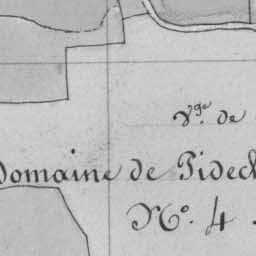 V.ge de
Domaine de Pidech
N.o 4.